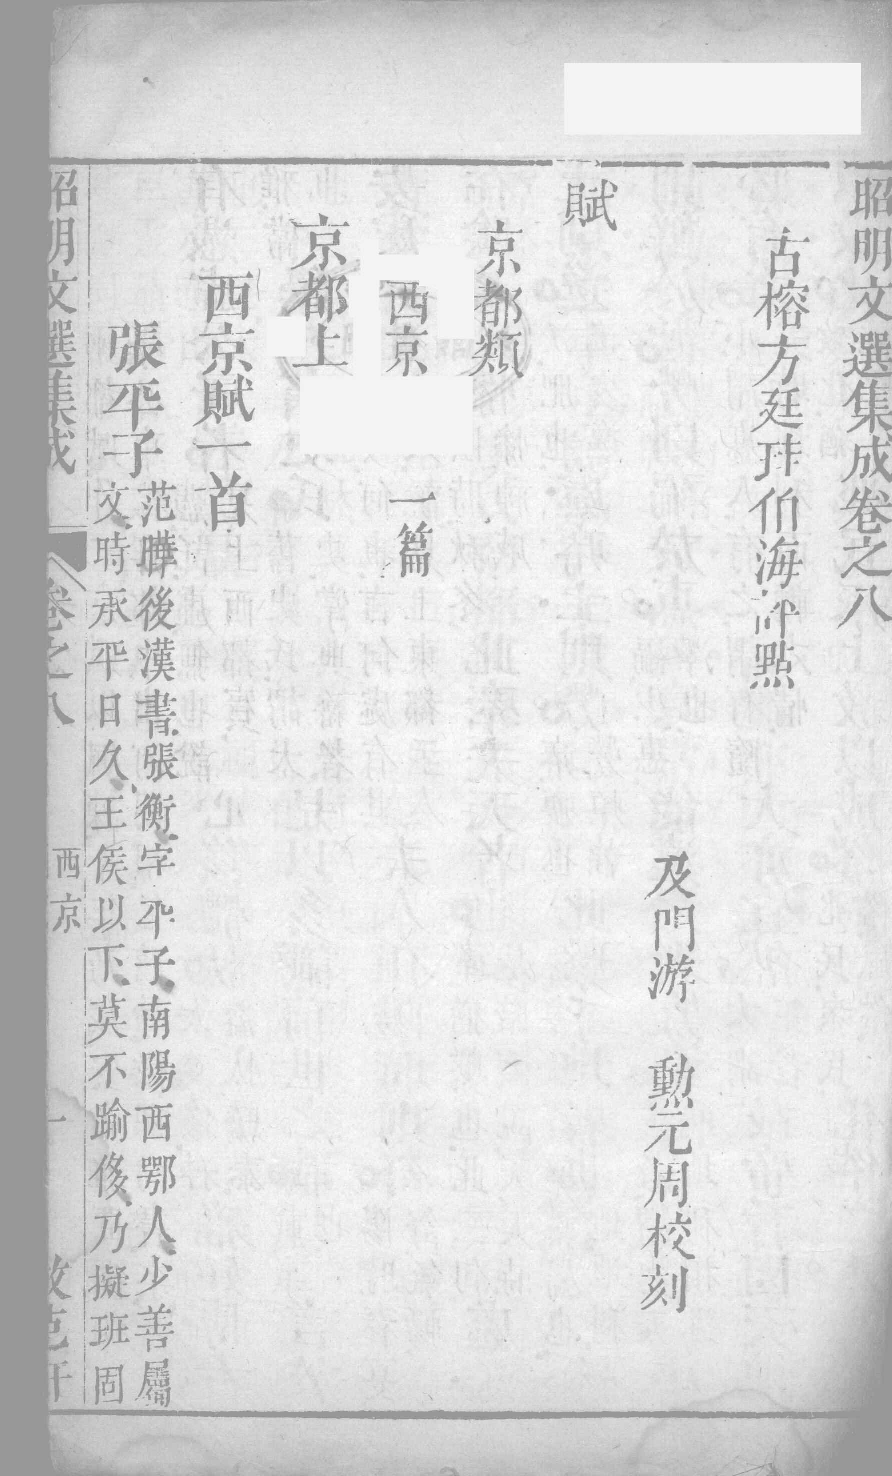 昭明文選集成卷之八
古榕方廷珪伯海評點
及門游　勲元周校刻
賦
京都類
西京　一篇
京都上
西京賦一首
張平子
范曄後漢書張衡字平子南陽西鄂人少善屬
文時承平日久王侯以下莫不踰侈乃擬班固
昭明文選集成
卷之八
西京
一